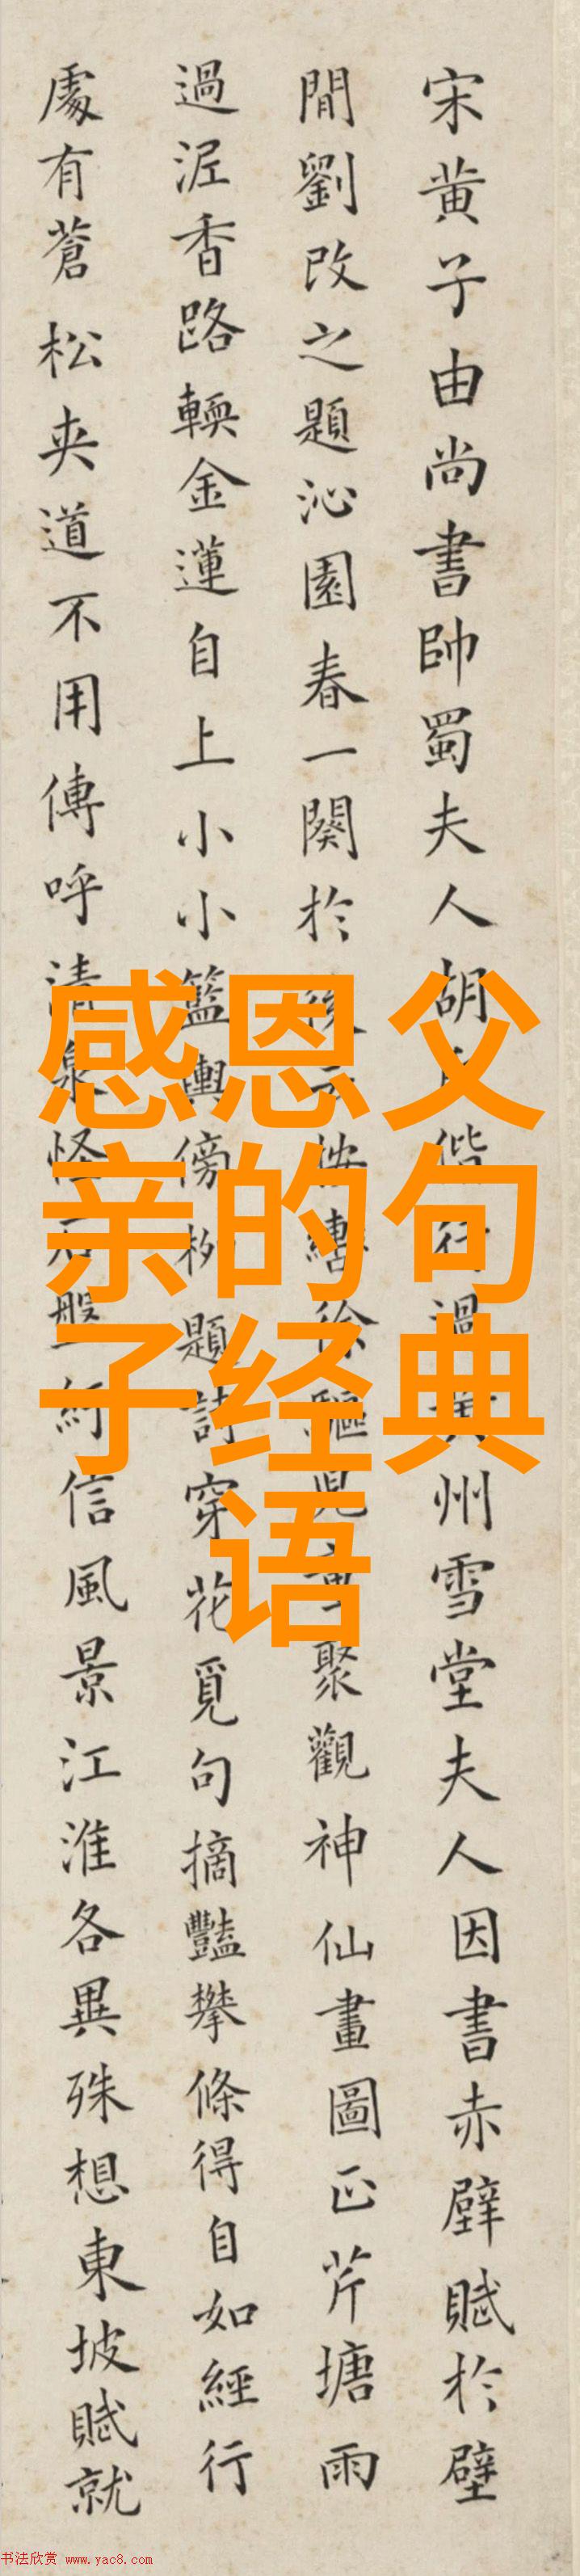 宋黄子由尚書帥蜀夫人胡偕行過州雪堂夫人因書赤壁賦於壁
間劉改之題沁園春一闋於後云按轡徐驅兒童聚觀神仙畫圖正芹塘雨
過泥香路輭金蓮自上小小籃輿傍桞題詩穿花覓句摘豔攀條得自如經行
處有蒼松夾道不用傳呼清泉怪石盤紆信風景江淮各異殊想東坡賦就
感恩父
亲的句
子经典
语
书法欣赏 www.yac8.com